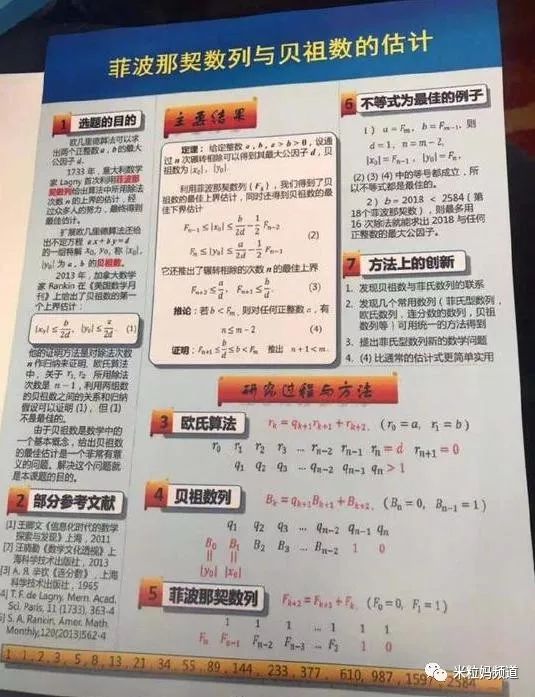 菲波那契数列与贝祖数的估计
1 选题的目的
欧几里德算法可以求
出两个正整数 a, b 的最大
公因子 d.
1733 年,意大利数学
家 Lagny 首次利用菲波那
契数列给出算法中所用除法
次数 n 的上界的估计,经
过众多人的努力,最终得到
最佳估计。
扩展欧几里德算法还给
出不定方程 ax+by=d
的一组特解 x₀, y₀, 称 |x₀|,
|y₀| 为 a, b 的贝祖数。
2013 年,加拿大数学
家 Rankin 在《美国数学月
刊》上给出了贝祖数的第一
个上界估计:
|x₀| ≤ b/2d, |y₀| ≤ a/2d. (1)
他的证明方法是对除法次数
n 作归纳来证明. 欧氏算法
中,关于 r₁, r₂ 所用除法
次数是 n−1,利用两组数
的贝祖数之间的关系和归纳
假设可以证明 (1),但 (1)
不是最佳的。
由于贝祖数是数学中的
一个基本概念,给出贝祖数
的最佳估计是一个非常有意
义的问题。解决这个问题就
是本课题的目的。
2 部分参考文献
[1] 王卿文《信息化时代的数学
探索与发现》上海,2011
[2] 汪晓勤《数学文化透视》上
海科学技术出版社,2013
[3] A. Я. 辛钦《连分数》,上海
科学技术出版社,1965
4] T. F. de Lagny, Mem. Acad.
Sci. Paris, 11 (1733), 363-4
5] S. A. Rankin, Amer. Math.
Monthly,120(2013)562-4
主要结果
定理:给定整数 a, b, a > b > 0,设通
过 n 次辗转相除可以得到其最大公因子 d,贝
祖数为 |x₀|, |y₀|.
利用菲波那契数列 {Fₖ},我们得到了贝
祖数的最佳上界估计,同时还得到贝祖数的最
佳下界估计
Fₙ₋₁ ≤ |x₀| ≤ b/2d − 1/2 Fₙ₋₂
(2)
Fₙ ≤ |y₀| ≤ a/2d − 1/2 Fₙ₋₁
它还推出了辗转相除的次数 n 的最佳上界
Fₙ₊₂ ≤ a/d, Fₙ₊₁ ≤ b/d. (3)
推论:若 b < Fₘ, 则对任何正整数 a,有
n ≤ m − 2 (4)
证明:Fₙ₊₁ ≤ b/d ≤ b < Fₘ 推出 n + 1 < m.
研究过程与方法
3 欧氏算法 rₖ = qₖ₊₁rₖ₊₁ + rₖ₊₂, (r₀ = a, r₁ = b)
r₀ r₁ r₂ r₃ … rₙ₋₂ rₙ₋₁ rₙ = d rₙ₊₁ = 0
q₁ q₂ q₃ … qₙ₋₂ qₙ₋₁ qₙ > 1
4 贝祖数列 Bₖ = qₖ₊₁Bₖ₊₁ + Bₖ₊₂, (Bₙ = 0, Bₙ₋₁ = 1)
q₁ q₂ q₃ … qₙ₋₂ qₙ₋₁ qₙ
B₀ B₁ B₂ B₃ … Bₙ₋₂ 1 0
|| ||
|y₀| |x₀|
5 菲波那契数列 Fₖ₊₂ = Fₖ₊₁ + Fₖ, (F₀ = 0, F₁ = 1)
1 1 1 … 1 1 1
Fₙ Fₙ₋₁ Fₙ₋₂ Fₙ₋₃ … F₂ 1 0
6 不等式为最佳的例子
1) a = Fₘ, b = Fₘ₋₁, 则
d = 1, n = m − 2,
|x₀| = Fₙ₋₁, |y₀| = Fₙ.
(2) (3) (4) 中的等号都成立,所
以不等式都是最佳的。
2) b = 2018 < 2584 (第
18个菲波那契数),则最多用
16 次除法就能求出 2018 与任何
正整数的最大公因子。
7 方法上的创新
1. 发现贝祖数与菲氏数列的联系
2. 发现几个常用数列(菲氏型数列,
欧氏数列,连分数的数列,贝祖
数列等)可用统一的方法得到
3. 提出菲氏型数列新的数学问题
4. (4) 比通常的估计式更简单实用
1, 1, 2, 3, 5, 8, 13, 21, 34, 55, 89, 144, 233, 377, 610, 987, 1597, 2584
米粒妈频道